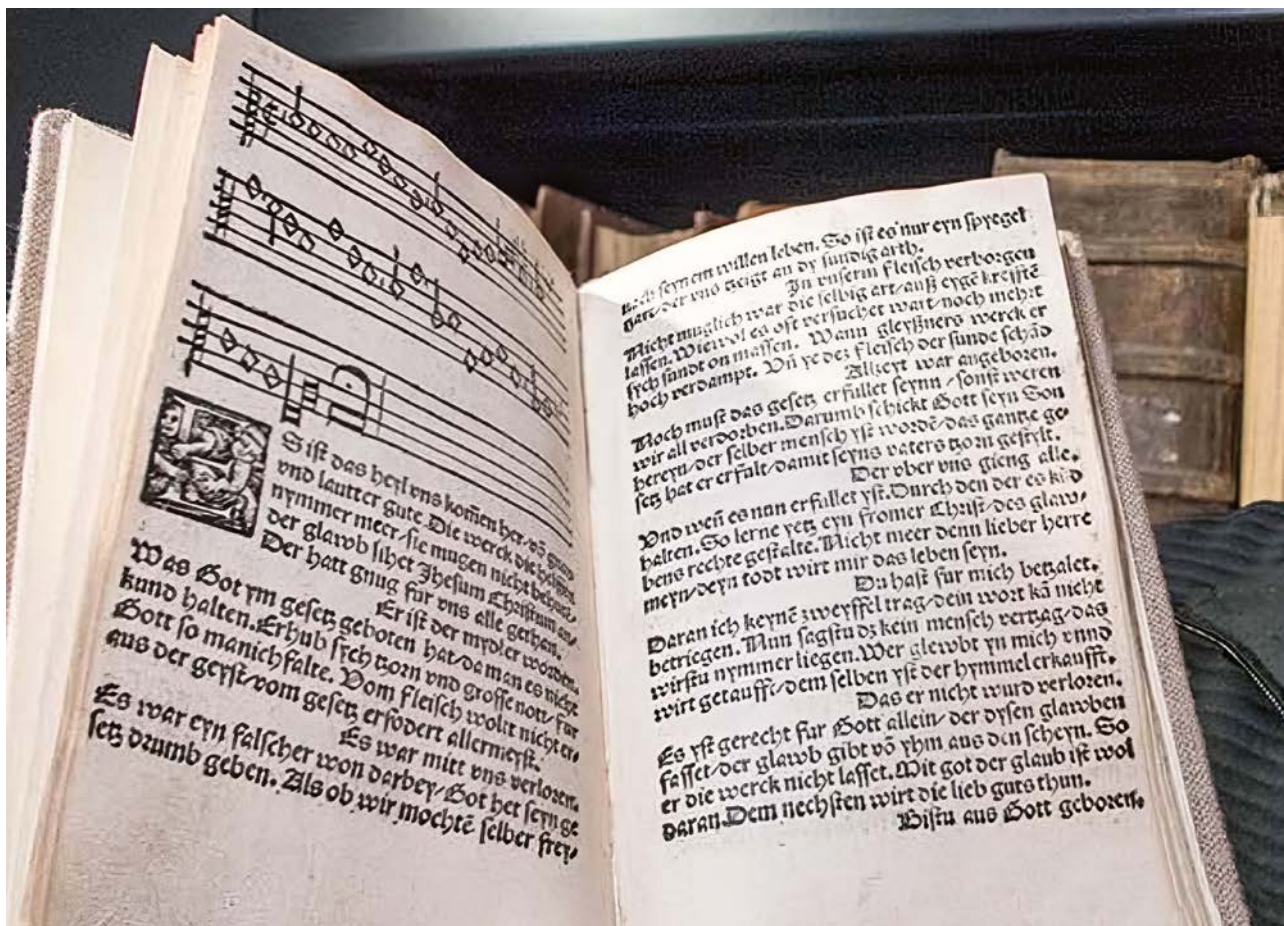 S ist das heyl vns komen her, vō gnad
vnd lautter gute. Die werck die helffen
nymmer meer, sie mugen nicht behuten,
der glawb sihet Jhesum Christum an,
Der hatt gnug fur vns alle gethan.
Er ist der mydler worden.
Was Got ym gesetz geboten hat, da man es nicht
kund halten. Erhub sych tzorn vnd grosse nott, fur
Gott so manichfalte. Vom fleisch wollt nicht er,
aus der geyst, vom gesetz erfodert allermeyst.
Es war mitt vns verloren.
Es war eyn falscher won darbey, Got het seyn ge
setz drumb geben. Als ob wir mochtē selber frey,
nach seynem willen leben. So ist es nur eyn spyegel
zart, der vns tzeigt an dy sundig arth.
Jn vnserm fleisch verborgen
Nicht muglich war die selbig art, auß eygē kreffte
lassen. Wiewol es oft versuchet wart, noch mehrt
sych sundt on massen. Wann gleyßners werck er
hoch verdampt. Vñ ye dez fleisch der sunde schād
Allzeyt war angeboren.
Noch must das gesetz erfullet seynn, sonst weren
wir all verdorben. Darumb schickt Gott seyn Son
hereyn, der selber mensch yst wordē, das gantze ge,
setz hat er erfult, damit seyns vaters tzorn gestylt.
Der vber vns gieng alle.
Vnd weñ es nun erfullet yst. Durch den der es kūd
halten. So lerne yetz eyn fromer Christ, des glaw,
bens rechte gestalte. Nicht meer denn lieber herre
meyn, deyn todt wirt mir das leben seyn.
Du hast fur mich betzalet.
Daran ich keynē zweyffel trag, dein wort kā nicht
betriegen. Nun sagstu dz kein mensch vertzag, das
wirstu nymmer liegen. Wer glewbt yn mich vnnd
wirt getaufft, dem selben yst der hymmel erkaufft.
Das er nicht wurd verloren.
Es yst gerecht fur Gott allein, der dysen glawben
fasset, der glawb gibt vō yhm aus den scheyn. So
er die werck nicht lasset. Mit got der glaub ist wol
daran. Dem nechsten wirt die lieb guts thun.
Bistu aus Gott geboren.